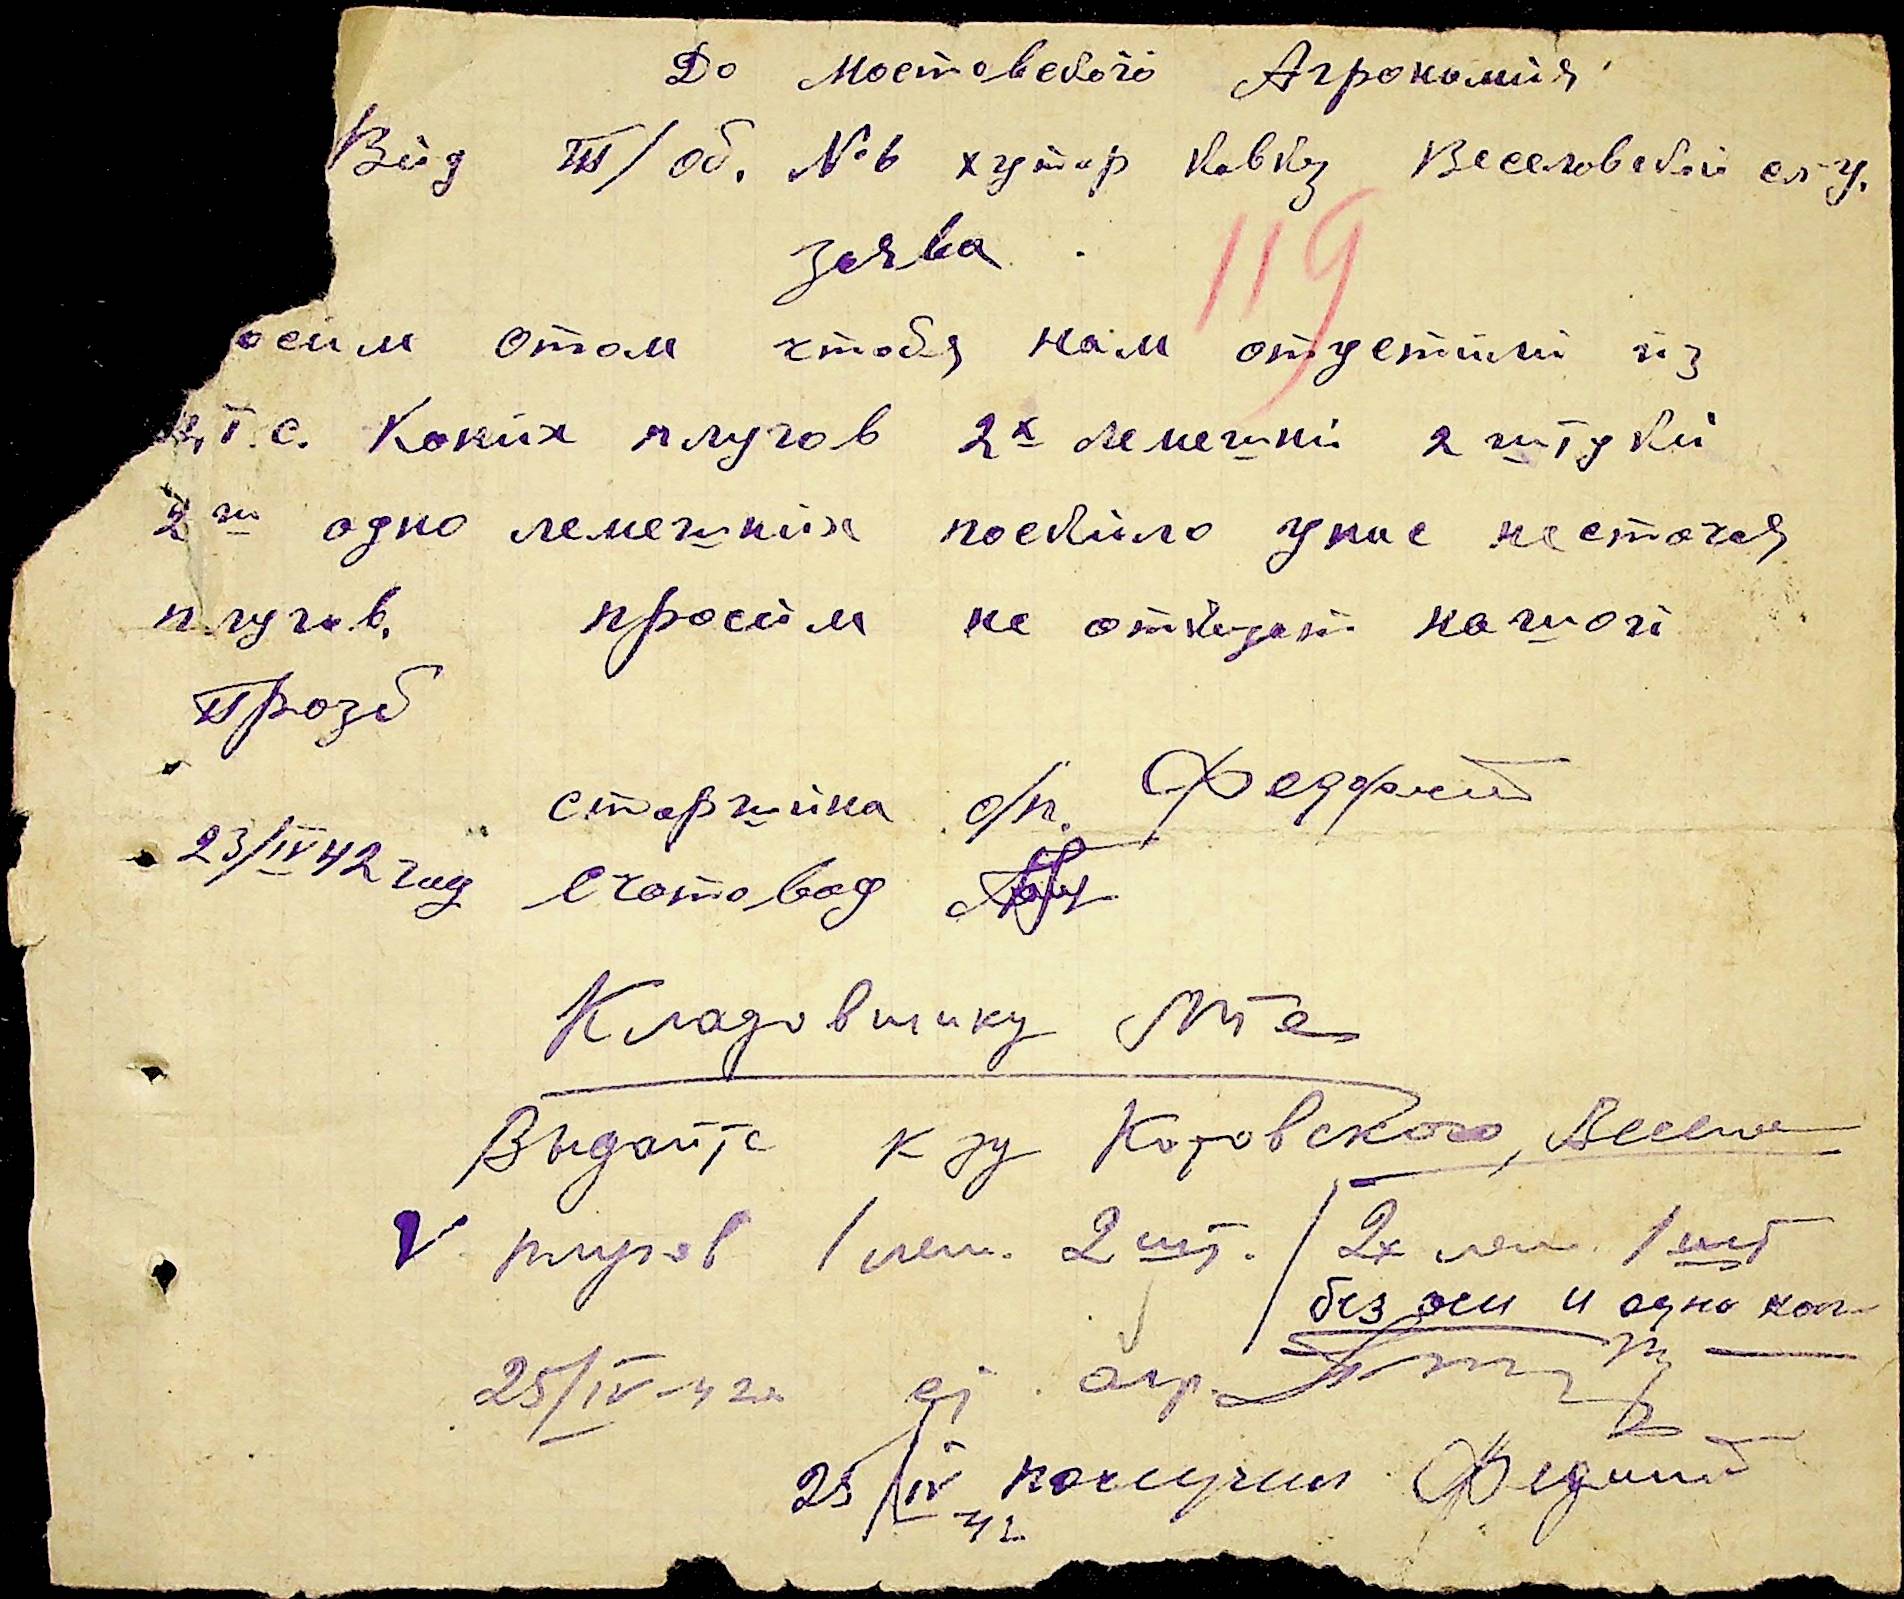 До мостовского Агрономия
Від Ш/об. №6 хутор Веселовской с/у.
заява
119
осим отом чтобы нам отпустили из
.Т.С. Коних плугов 2х лемешни 2 штуки
2ш одно лемешних поскило унас нестачая
плугов. просим не откидат нашой
прозб
старшина
23/IV 42 год Счотовод
Кладовщику МТС
Выдайте к-зу Котовского, Весело
V плугов 1 лем. 2 шт. / 2х лем. 1 шт
без оси и одно кол
25/IV-42г ст. агр.
25/IV 42 получил